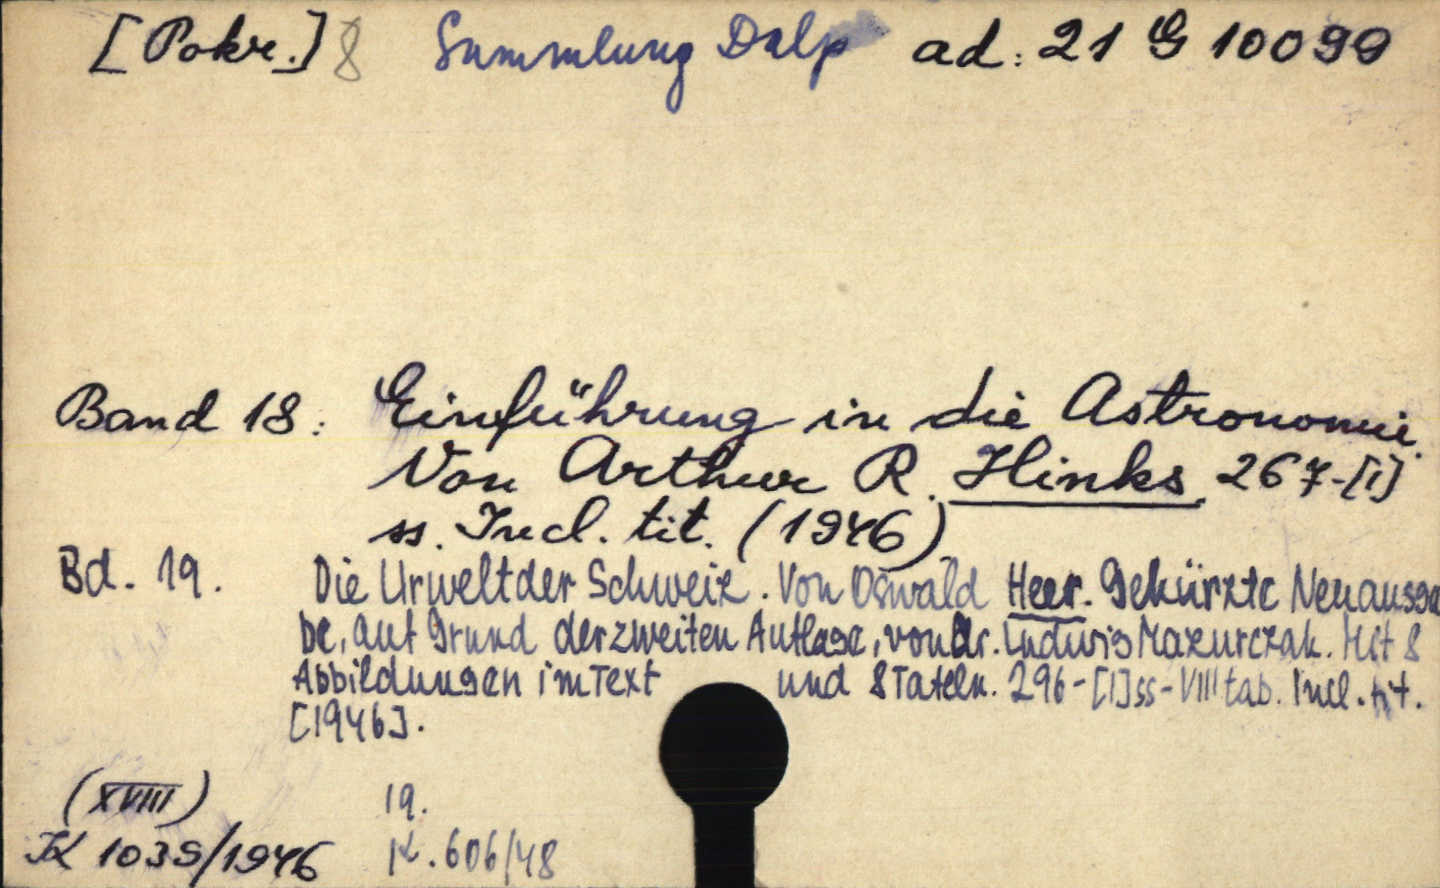 [Pokr.] 8 Sammlung Dalp ad: 21 G 10099
Band 18: Einführung in die Astronomie.
Von Arthur R. Hinks. 267-[1]
ss. Incl. tit. (1946)
Bd. 19. Die Urwelt der Schweiz. Von Oswald Heer. Gekürzte Neuausga
be, auf Grund der zweiten Auflage, von Dr. Ludwig Mazurczak. Mit 8
Abbildungen im Text und 8 Tafeln. 296-[1] ss-VIII tab. Incl. tit.
[1946].
(XVIII) 19.
K 1039/1946 K. 606/48